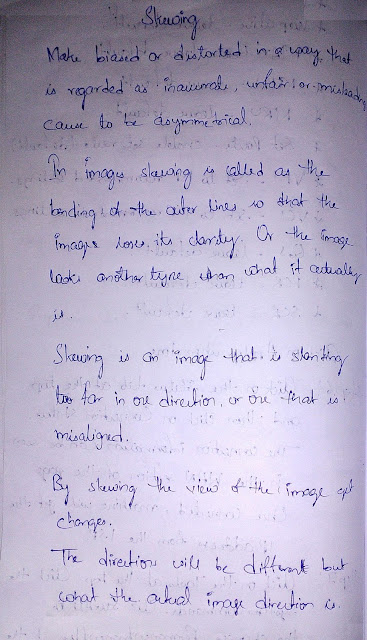 Skewing
Make biased or distorted in a way that
is regarded as inaccurate, unfair or misleading
cause to be asymmetrical.
In images skewing is called as the
bending of the outer lines so that the
images loses its clarity. Or the image
looks another type than what it actually
is.
Skewing is an image that is slanting
too far in one direction, or one that is
misaligned.
By skewing the view of the image get
changes.
The direction will be different but
what the actual image direction is.